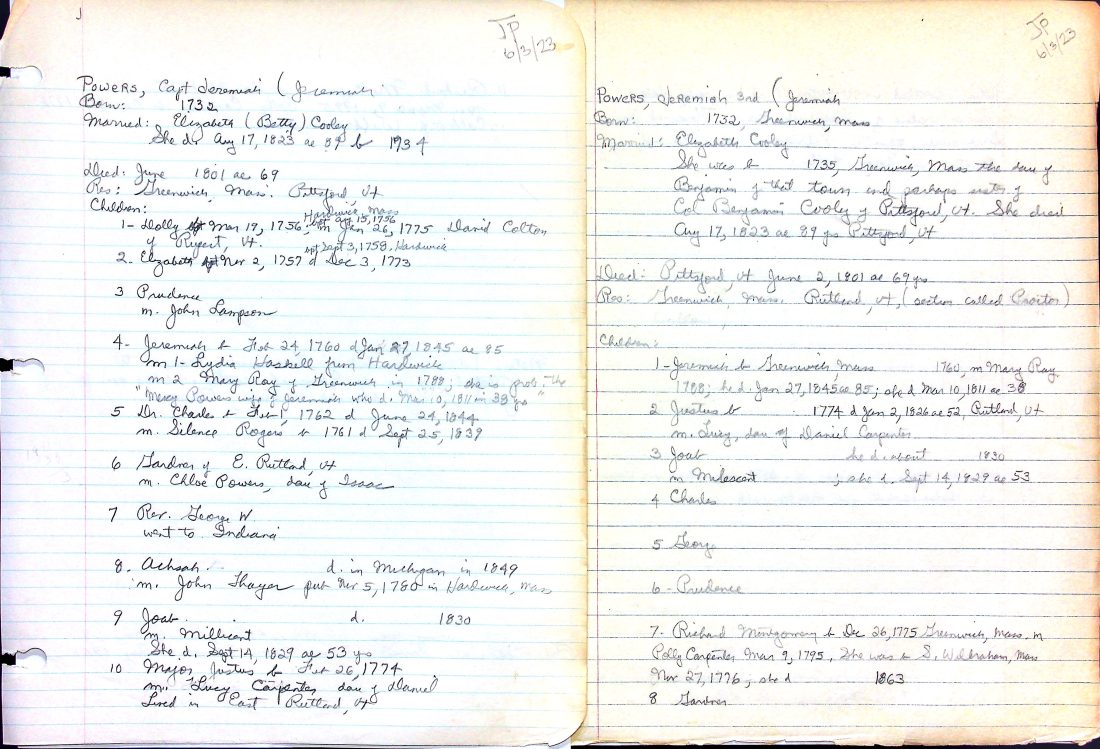 JP
6/3/23
Powers, Capt Jeremiah (Jeremiah
Born: 1732
Married: Elizabeth (Betty) Cooley
She d. Aug 17, 1823 ae 89 b 1934
Died: June 1801 ae 69
Res: Greenwich, Mass. Pittsford, Vt
Children:
Hardwick, Mass
1- Dolly Mar 19, 1756, bpt Aug 15, 1756 m Jan 26, 1775 David Colton
of Rupert, Vt.
bpt Sept 3, 1758. Hardwick
2. Elizabeth Nov 2, 1757 d Dec 3, 1773
3 Prudence
m. John Lampson
4- Jeremiah b Feb 24, 1760 d Jan 27, 1845 ae 85
m 1- Lydia Haskell from Hardwick
m 2 Mary Ray of Greenwich in 1788; she is prob. "the
"Mercy Powers wife of Jeremiah who d. Mar 10, 1811 in 38 yr"
5 Dr. Charles b Feb 1, 1762 d June 24, 1844
m. Silence Rogers b 1761 d Sept 25, 1839
6 Gardner of E. Rutland, Vt
m. Chloe Powers, dau of Isaac
7 Rev. George W.
went to Indiana
8. Achsah d. in Michigan in 1849
m. John Thayer pub Nov 5, 1780 in Hardwick, Mass
9 Joab d. 1830
m. Millicent
She d. Sept 14, 1829 ae 53 yrs
10 Major Justus b Feb 26, 1774
m. Lucy Carpenter dau of Daniel
Lived in East Rutland, Vt
JP
6/3/23
Powers, Jeremiah 3rd (Jeremiah
Born: 1732, Greenwich, Mass
Married: Elizabeth Cooley
She was b 1735, Greenwich, Mass the dau of
Benjamin of that town and perhaps sister of
Col Benjamin Cooley of Pittsford, Vt. She died
Aug 17, 1823 ae 89 yrs Pittsford, Vt
Died: Pittsford, Vt June 2, 1801 ae 69 yrs
Res: Greenwich, Mass. Rutland, Vt, (section called Proctor)
Children:
1- Jeremiah b Greenwich, Mass 1760, m Mary Ray
1788; he d. Jan 27, 1845 ae 85; she d Mar 10, 1811 ae 38
2 Justus b 1774 d Jan 2, 1826 ae 52, Rutland, Vt
m. Lucy, dau of Daniel Carpenter
3 Joab he d. about 1830
m Milescent ; she d. Sept 14, 1829 ae 53
4 Charles
5 Georg
6- Prudence
7. Richard Montgomery b Dec 26, 1775 Greenwich, Mass. m
Polly Carpenter Mar 9, 1795. She was b S. Wilbraham, Mass
Nov 27, 1776; she d 1863
8 Gardner